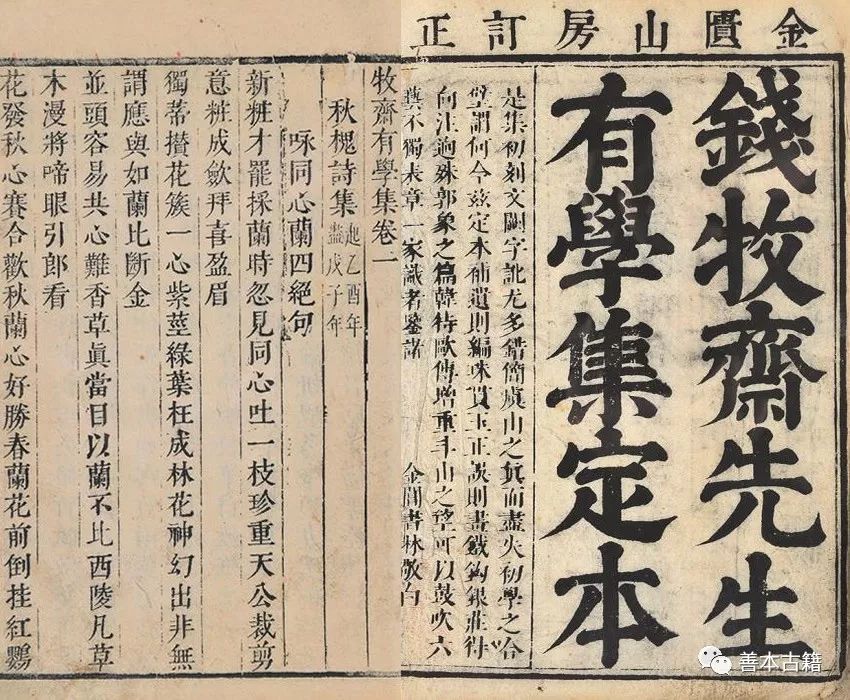 金匱山房訂正
錢牧齋先生
有學集定本
是集初刻文闕字訛尤多錯簡虞山之眞而盡失初學之合
璧謂何今茲定本補遺則編珠貫玉正誤則畫鐵鉤銀莊待
向注逈殊郭象之篇韓待歐傳增重斗山之望可以鼓吹六
藝不獨表章一家識者鑒諸 金閶書林敬白
牧齋有學集卷一
秋槐詩集 起乙酉年 盡戊子年
咏同心蘭四絕句
新粧才罷採蘭時忽見同心吐一枝珍重天公裁剪
意粧成歛拜喜盈眉
獨蒂攢花簇一心紫莖綠葉枉成林花神幻出非無
謂應與如蘭比斷金
並頭容易共心難香草眞當目以蘭不比西陵凡草
木漫將啼眼引郎看
花發秋心賽合歡秋蘭心好勝春蘭花前倒挂紅鸚
善本古籍